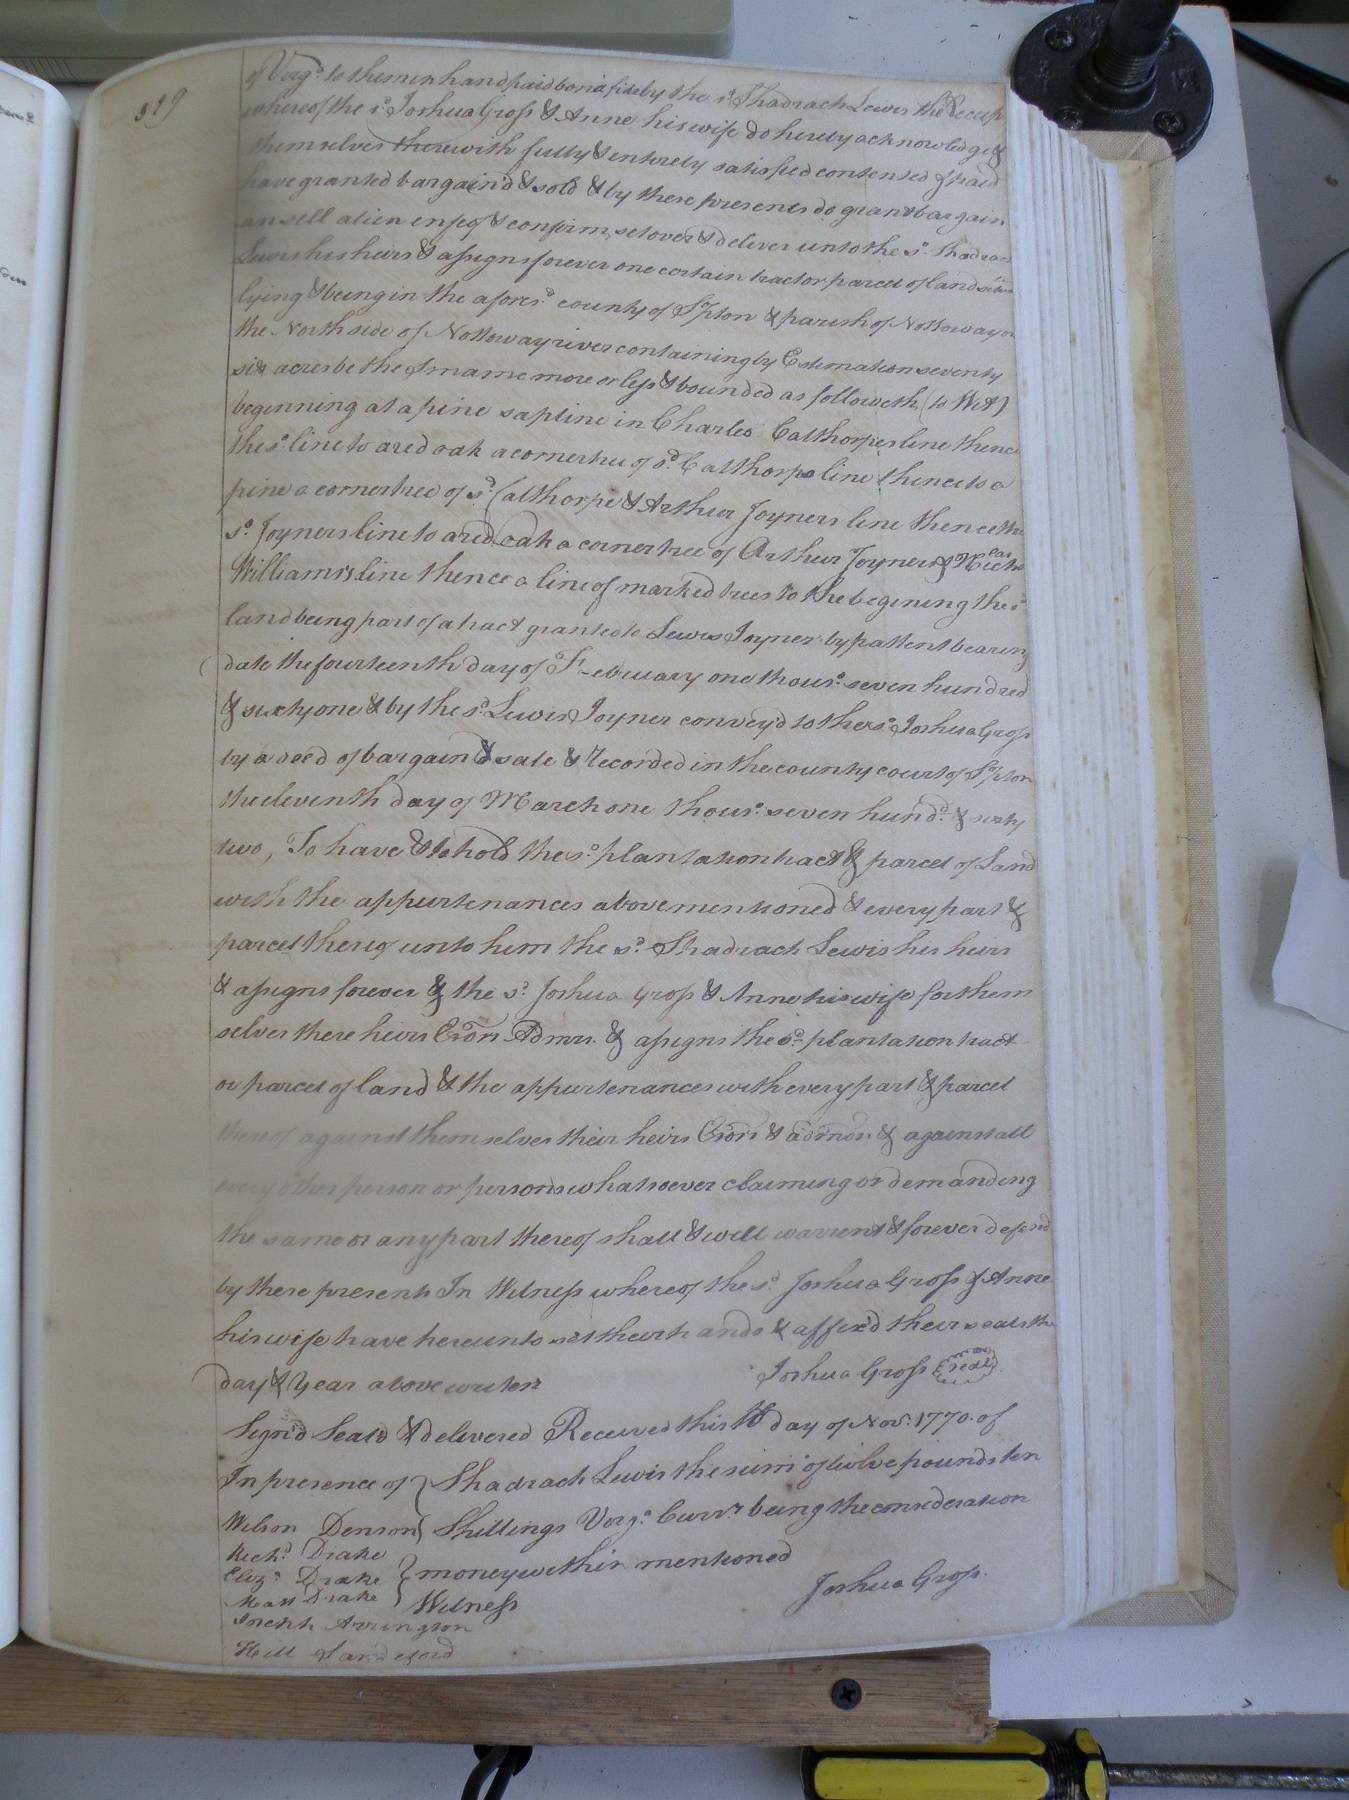 329
of Virga. to them in hand paid bonafide by the sd. Shadrach Lewis the Receip
whereof the sd. Joshua Gross & Anne his wife do hereby acknowledge &
themselves therewith fully & entirely satisfied contented & paid
have granted bargain'd & sold & by these presents do grant bargain
an sell alien enfeof & confirm, set over & deliver unto the sd. Shadrac
Lewis his heirs & assigns forever one certain tract or parcel of land
lying & being in the aforesd. county of S'pton & parish of Nottoway on
the North side of Nottoway river containing by Estimation seventy
six acres be the Smame more or less & bounded as followeth (to Wit)
beginning at a pine sapline in Charles Calthorpes line thence
the sd. line to a red oak a corner tree of sd. Calthorps line thence to a
pine a corner tree of sd. Calthorpe & Arthur Joyners line thence the
sd. Joyners line to a red oak a corner tree of Arthur Joyners &
Williams's line thence a line of marked trees to the begining the sd
land being part of a tract granted to Lewis Joyner by pattent bearing
date the fourteenth day of February one thousd. seven hundred
& sixty one & by the sd. Lewis Joyner convey'd to the sd. Joshua Gross
by a deed of bargain & sale & Recorded in the county court of S'pton
the eleventh day of March one thousd. seven hundd. & sixty
two, To have & to hold the sd. plantation tract & parcel of Land
with the appurtenances above mentioned & every part &
parcel thereof unto him the sd. Shadrach Lewis his heirs
& assigns forever & the sd. Joshua Gross & Anne his wife for them
selves there heirs Exors Admrs. & assigns the sd. plantation tract
or parcel of land & the appurtenances with every part & parcel
thereof against themselves their heirs Exors & admrs. & against all
every other person or persons whatsoever claiming or demanding
the same or any part thereof shall & will warrent & forever defend
by these presents In Witness whereof the sd. Joshua Gross & Anne
his wife have hereunto set their hands & affix'd their seals the
day & Year above writen Joshua Gross (seal)
Sign'd Seal'd & delivered Received this day of Novr. 1770. of
In presence of } Shadrach Lewis the sum of twlve pounds ten
Wilson Denson } Shillings Virga. Curry. being the consideration
Richd. Drake
Eliza. Drake } money within mentioned
Drake } Witness Joshua Gross.
Arrington
Hill